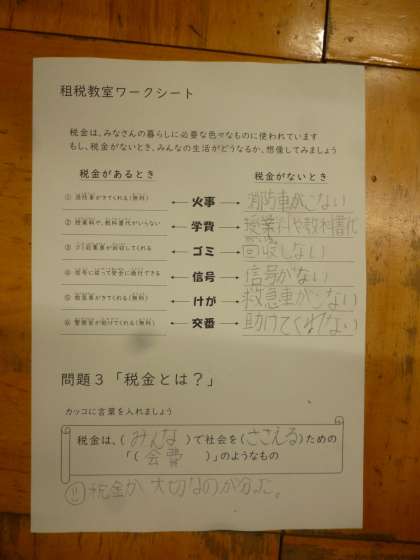 租税教室ワークシート
税金は、みなさんの暮らしに必要な色々なものに使われています
もし、税金がないとき、みんなの生活がどうなるか、想像してみましょう
税金があるとき 税金がないとき
① 消防車がきてくれる(無料) 火事 消防車がこない
② 授業料や、教科書代がいらない 学費 授業料や教科書代
③ ゴミ収集車が回収してくれる ゴミ 回収しない
④ 信号に従って安全に横断できる 信号 信号がない
⑤ 救急車がきてくれる(無料) けが 救急車がこない
⑥ 警察官が助けてくれる(無料) 交番 助けてくれない
問題3「税金とは?」
カッコに言葉を入れましょう
税金は、(みんな)で社会を(ささえる)ための
「(会費)」のようなもの
税金が大切なのが分った。